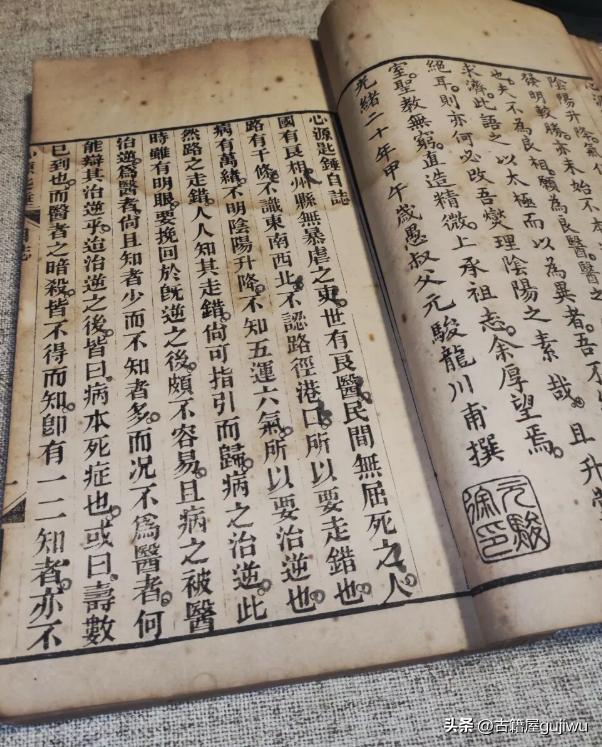 陰陽升降。
徐明敎勝。亦未始不本
也。夫不為良相。願為良醫。醫之
求濟。此語之以太極而以為異者。吾不
絕耳。則亦何必改吾燮理陰陽之素哉。且升
室。聖教無窮。直造精微。上承祖志。余厚望焉。
光緒二十年甲午歲愚叔父元駿龍川甫撰
元駿
徐印
心源匙錘自誌
國有良相。州縣無暴虐之吏。世有良醫。民間無屈死之人。
路有千條。不識東南西北。不認路徑港口。所以要走錯也。
病有萬緒。不明陰陽升降。不知五運六氣。所以要治逆也。
然路之走錯。人人知其走錯。尙可指引而歸。病之治逆。此
時雖有明眼。要挽回於旣逆之後。頗不容易。且病之被醫
治逆。爲醫者。尙且知者少而不知者多。而况不爲醫者。何
能辯其治逆乎。迨治逆之後。皆曰。病本死症也。或曰。壽數
已到也。而醫者之暗殺。皆不得而知。卽有一二知者。亦不
頭条 @古籍屋gujiwu